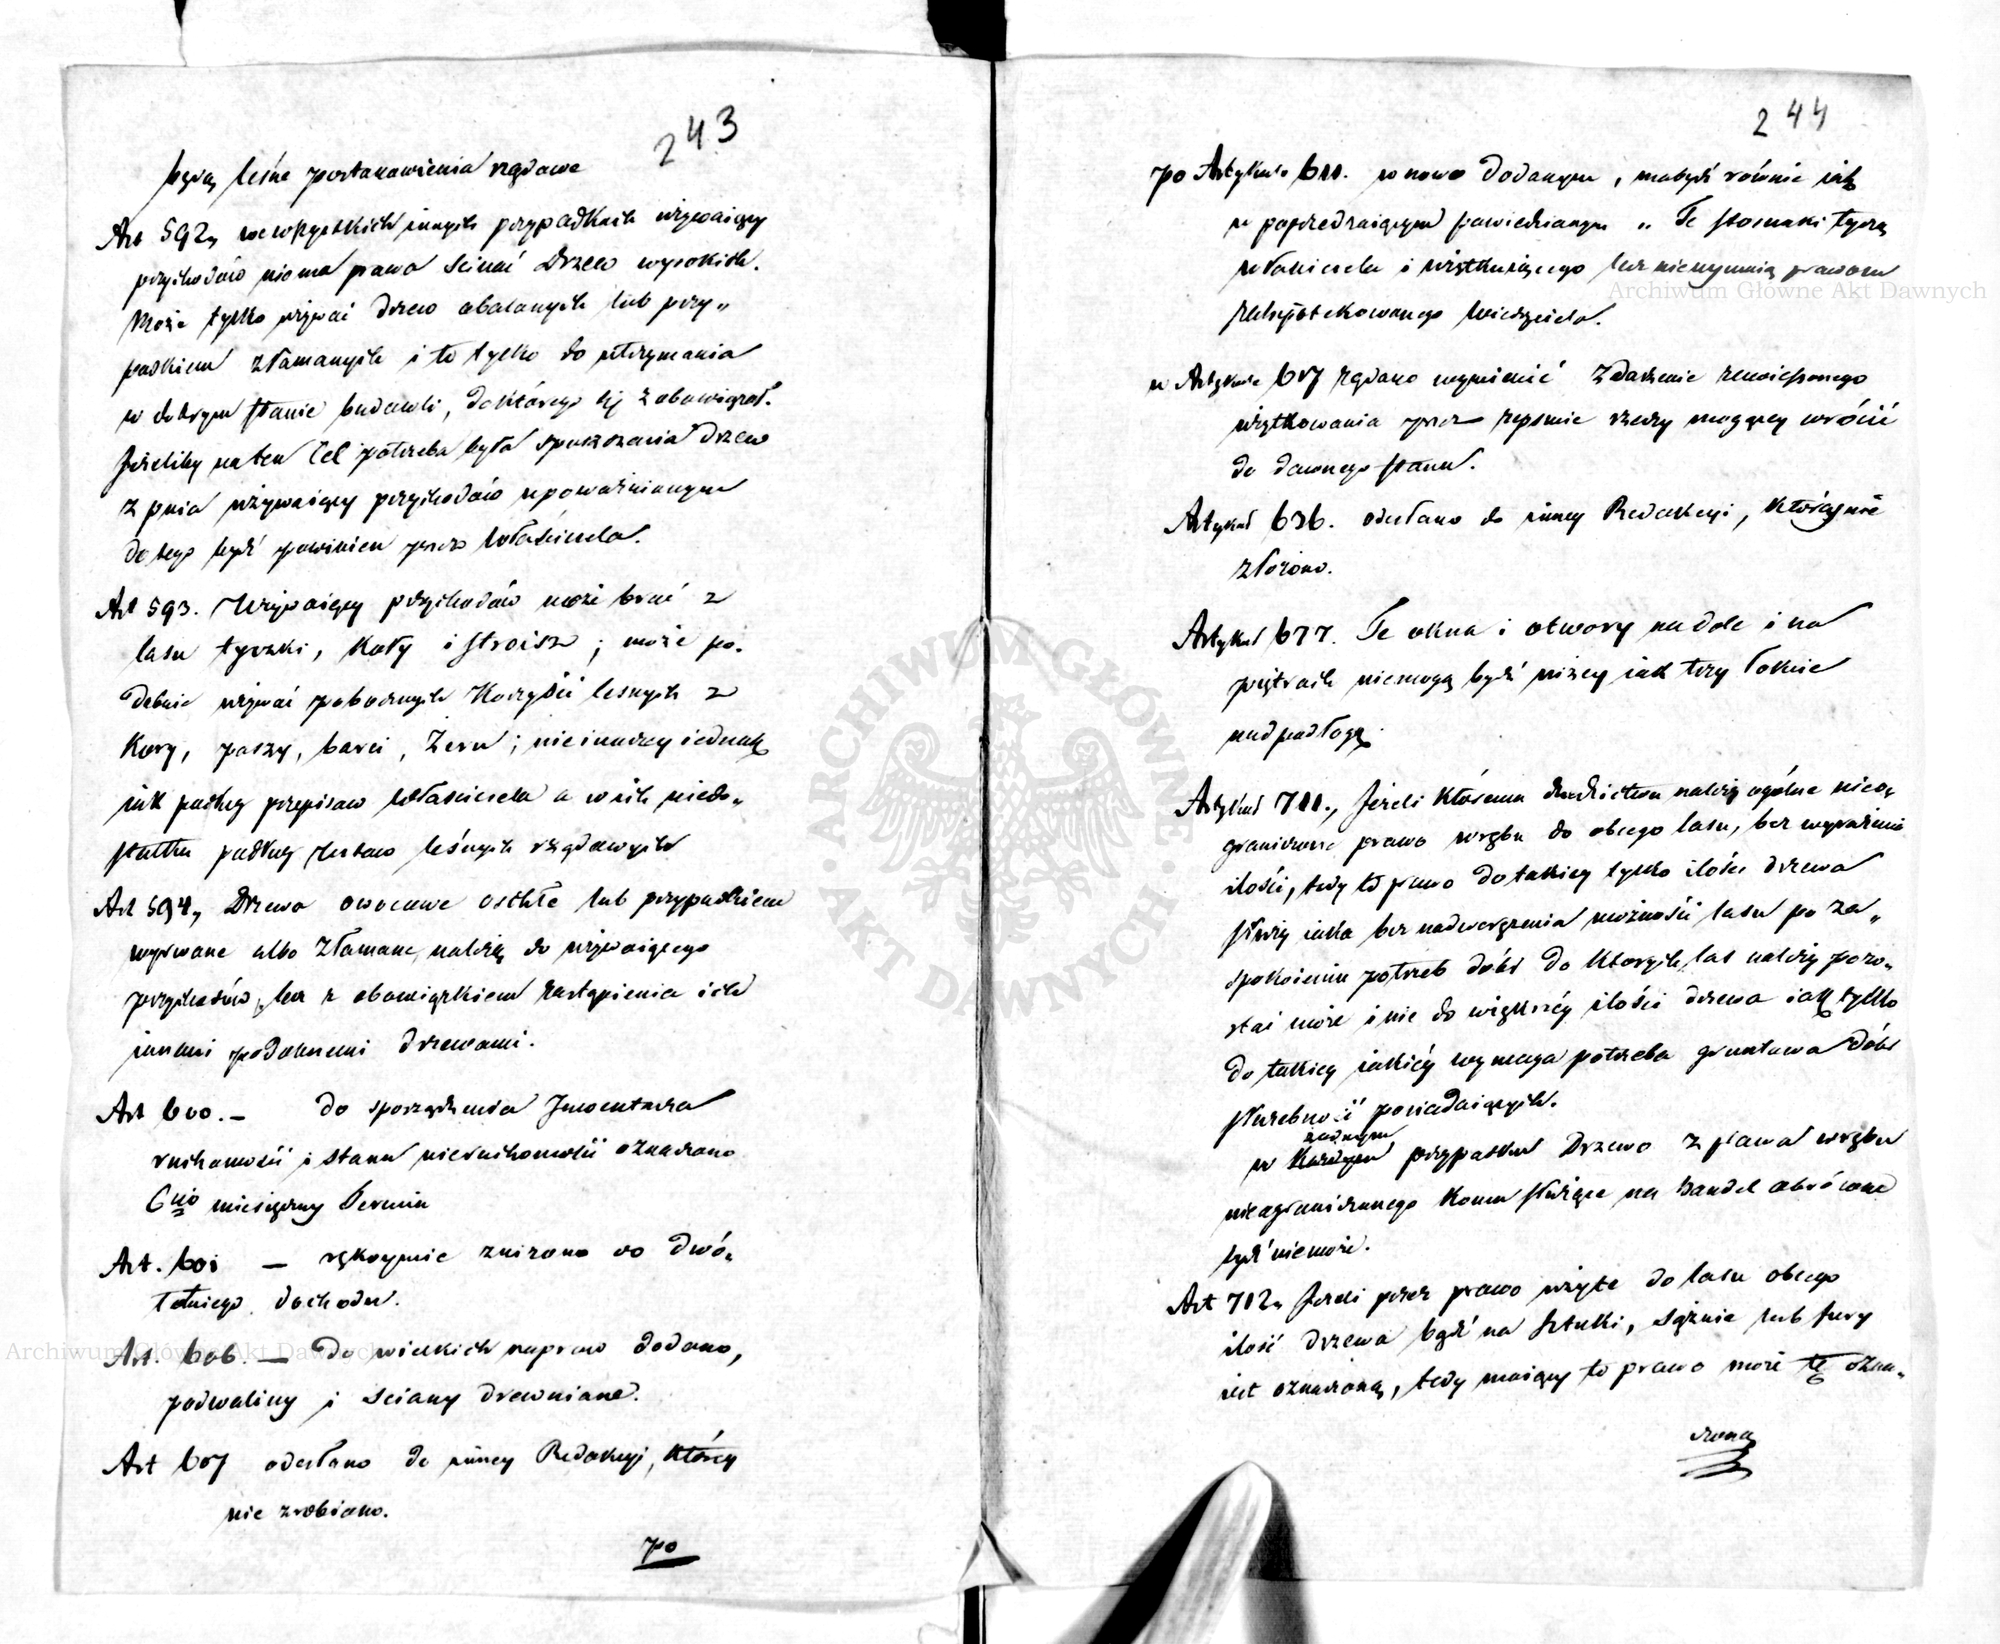 243
będą leśne postanowienia rządowe
Art 592, we wszystkich innych przypadkach używaiący
przychodów niema prawa ścinać Drzew wysokich.
Może tylko używać drzew obalonych lub przy„
padkiem złamanych i to tylko do utrzymania
w dobrym stanie budowli, do którego się zobowiązał.
Jeżeliby na ten Cel potrzeba była spuszczania drzew
z pnia używaiący przychodów upoważnionym
do tego bydź powinien przez właściciela.
Art 593. Używaiący przychodów może brać z
lasu tyczki, Koły i stroisz; może po„
dobnie używać pobocznych Korzyści leśnych z
Kory, paszy, barci, Żeru; nieinaczy iednak
iak podług przepisów właściciela a w ich niedo„
statku podług ustaw leśnych rządowych
Art 594, Drzewa owocowe oschłe lub przypadkiem
wyrwane albo złamane, należą do używaiącego
przychodów, lecz z obowiązkiem zastąpienia ich
innemi podobnemi drzewami.
Art 600. — do sporządzenia Inwentarza
ruchomości i stanu nieruchomości oznaczono
6cio miesięczny Termin
Art. 601 — rękoymie zniżono do dwó„
letniego dochodu.
Art. 606. — Do wielkich napraw dodano,
podwaliny i ściany drewniane.
Art 607 odesłano do inney Redakcyi, którey
nie zrobiono.
po
244
po Artykule 611. w nowo dodanym, mabydź równie iak
w poprzedzaiącym powiedzianym „ Te stosunki tyczą
właściciela i użytkuiącego lecz nieuymuią prawom
zahypotekowanego wierzyciela.
w Artykule 617 żądano wymienić Zdarzenie zawieszonego
użytkowania przez zepsucie rzeczy mogący wrócić
do dawnego stanu.
Artykuł 636. odesłano do inney Redakcyi, któréy nie
złożono.
Artykuł 677. Te okna i otwory na dole i na
piętrach niemogą bydź niżey iak trzy łokcie
nad podłogą.
Artykuł 711., Jeżeli któremu dziedzictwu należy ogólne nieo„
graniczone prawo wrębu do obcego lasu, bez wyrażenia
ilości, tedy to prawo do takiey tylko ilości drzewa
służy iaka bez nadwerężenia możności lasu po za„
spokoieniu potrzeb dóbr do których las należy pozo„
stać może i nie do większéy ilości drzewa iak tylko
do takiey iakiéy wymaga potrzeba gruntowa dóbr
służebność posiadaiących.
żadnym
w każdym przypadku Drzewo z prawa wrębu
nieograniczonego komu służące na handel obrócone
bydź nie może.
Art 712, Jeżeli przez prawo użyte do lasu obcego
ilość drzewa bądź na sztuki, sążnie lub fury
iest oznaczoną, tedy maiący to prawo może tę ozna„
czoną